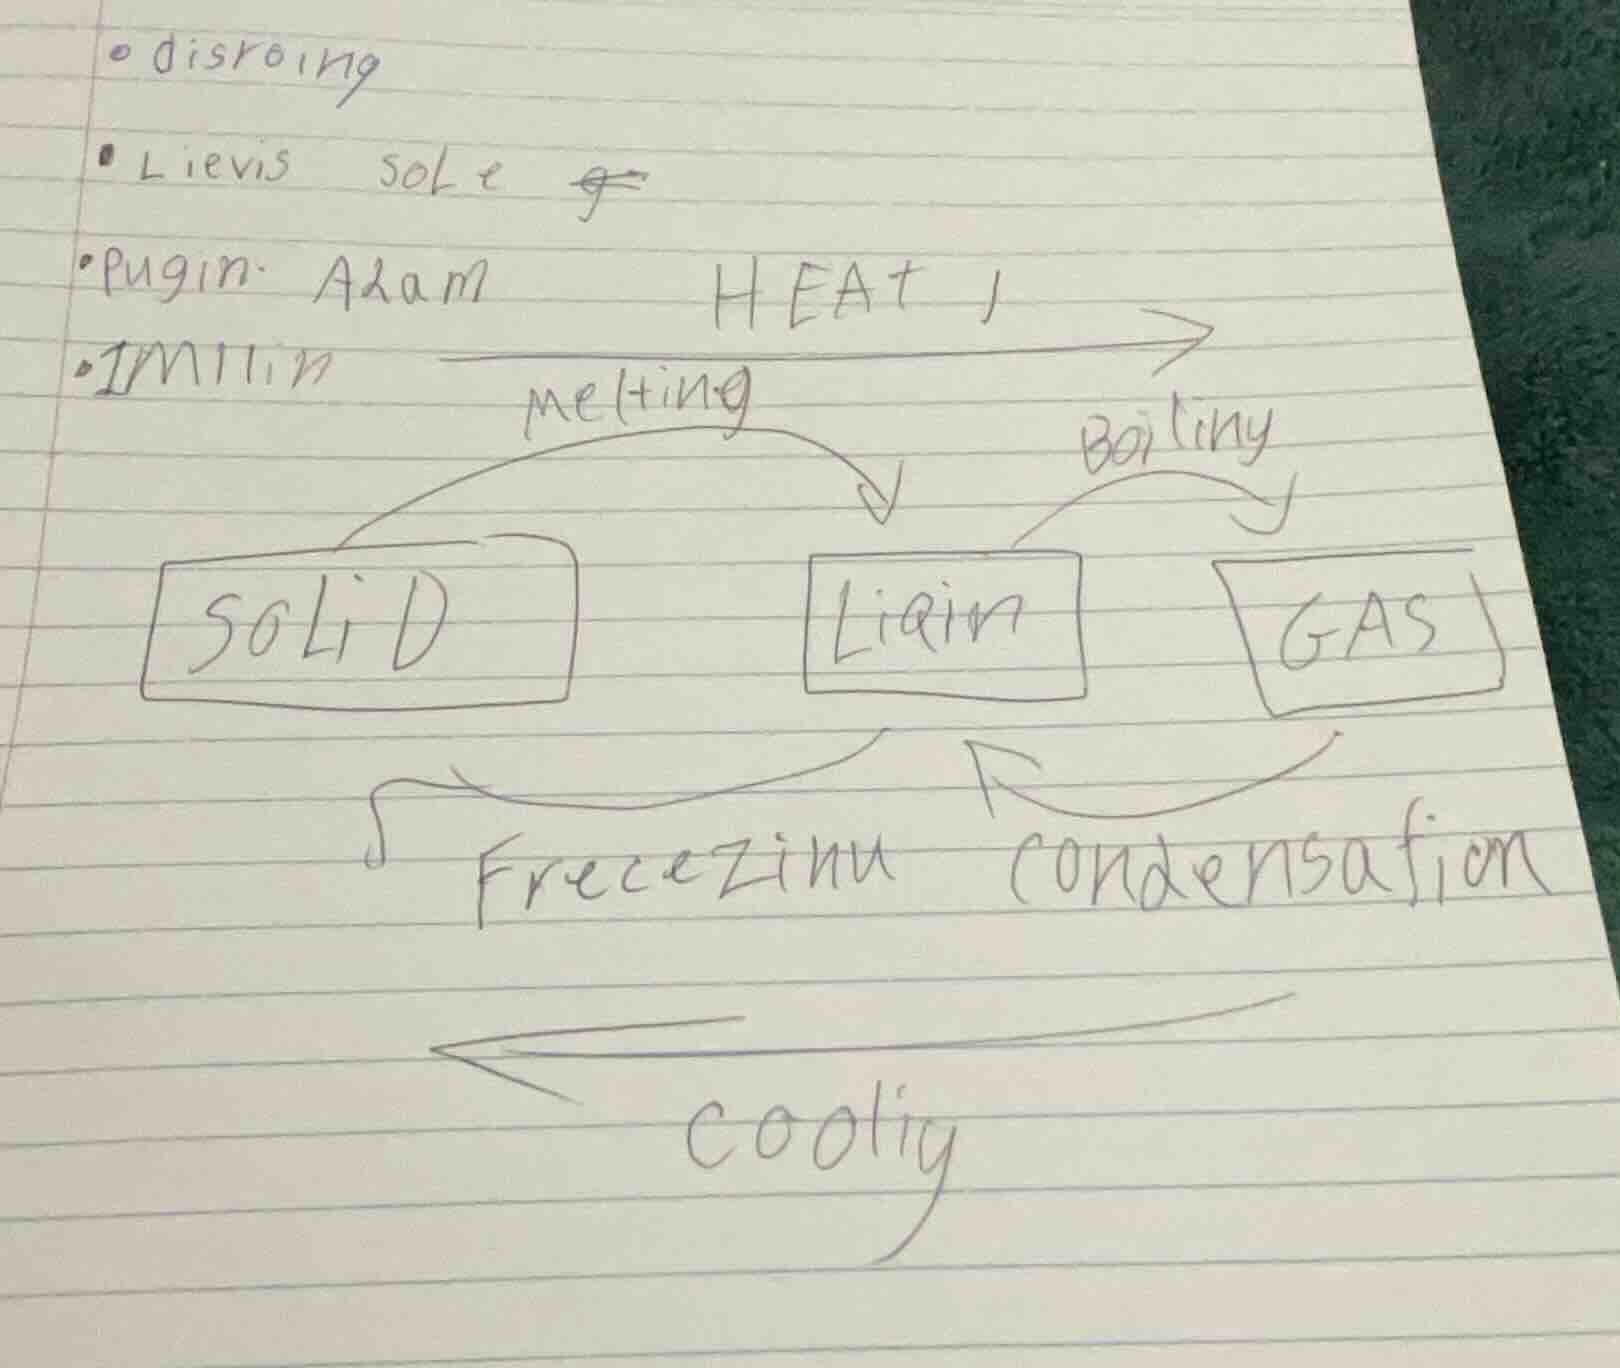 • disroing
• Lievis sole
• Pugin. Adam
HEAt
• IMIIin
Melting
Boiliny
SOLiD
Liqin
GAS
Frecezinu condensation
cooliy